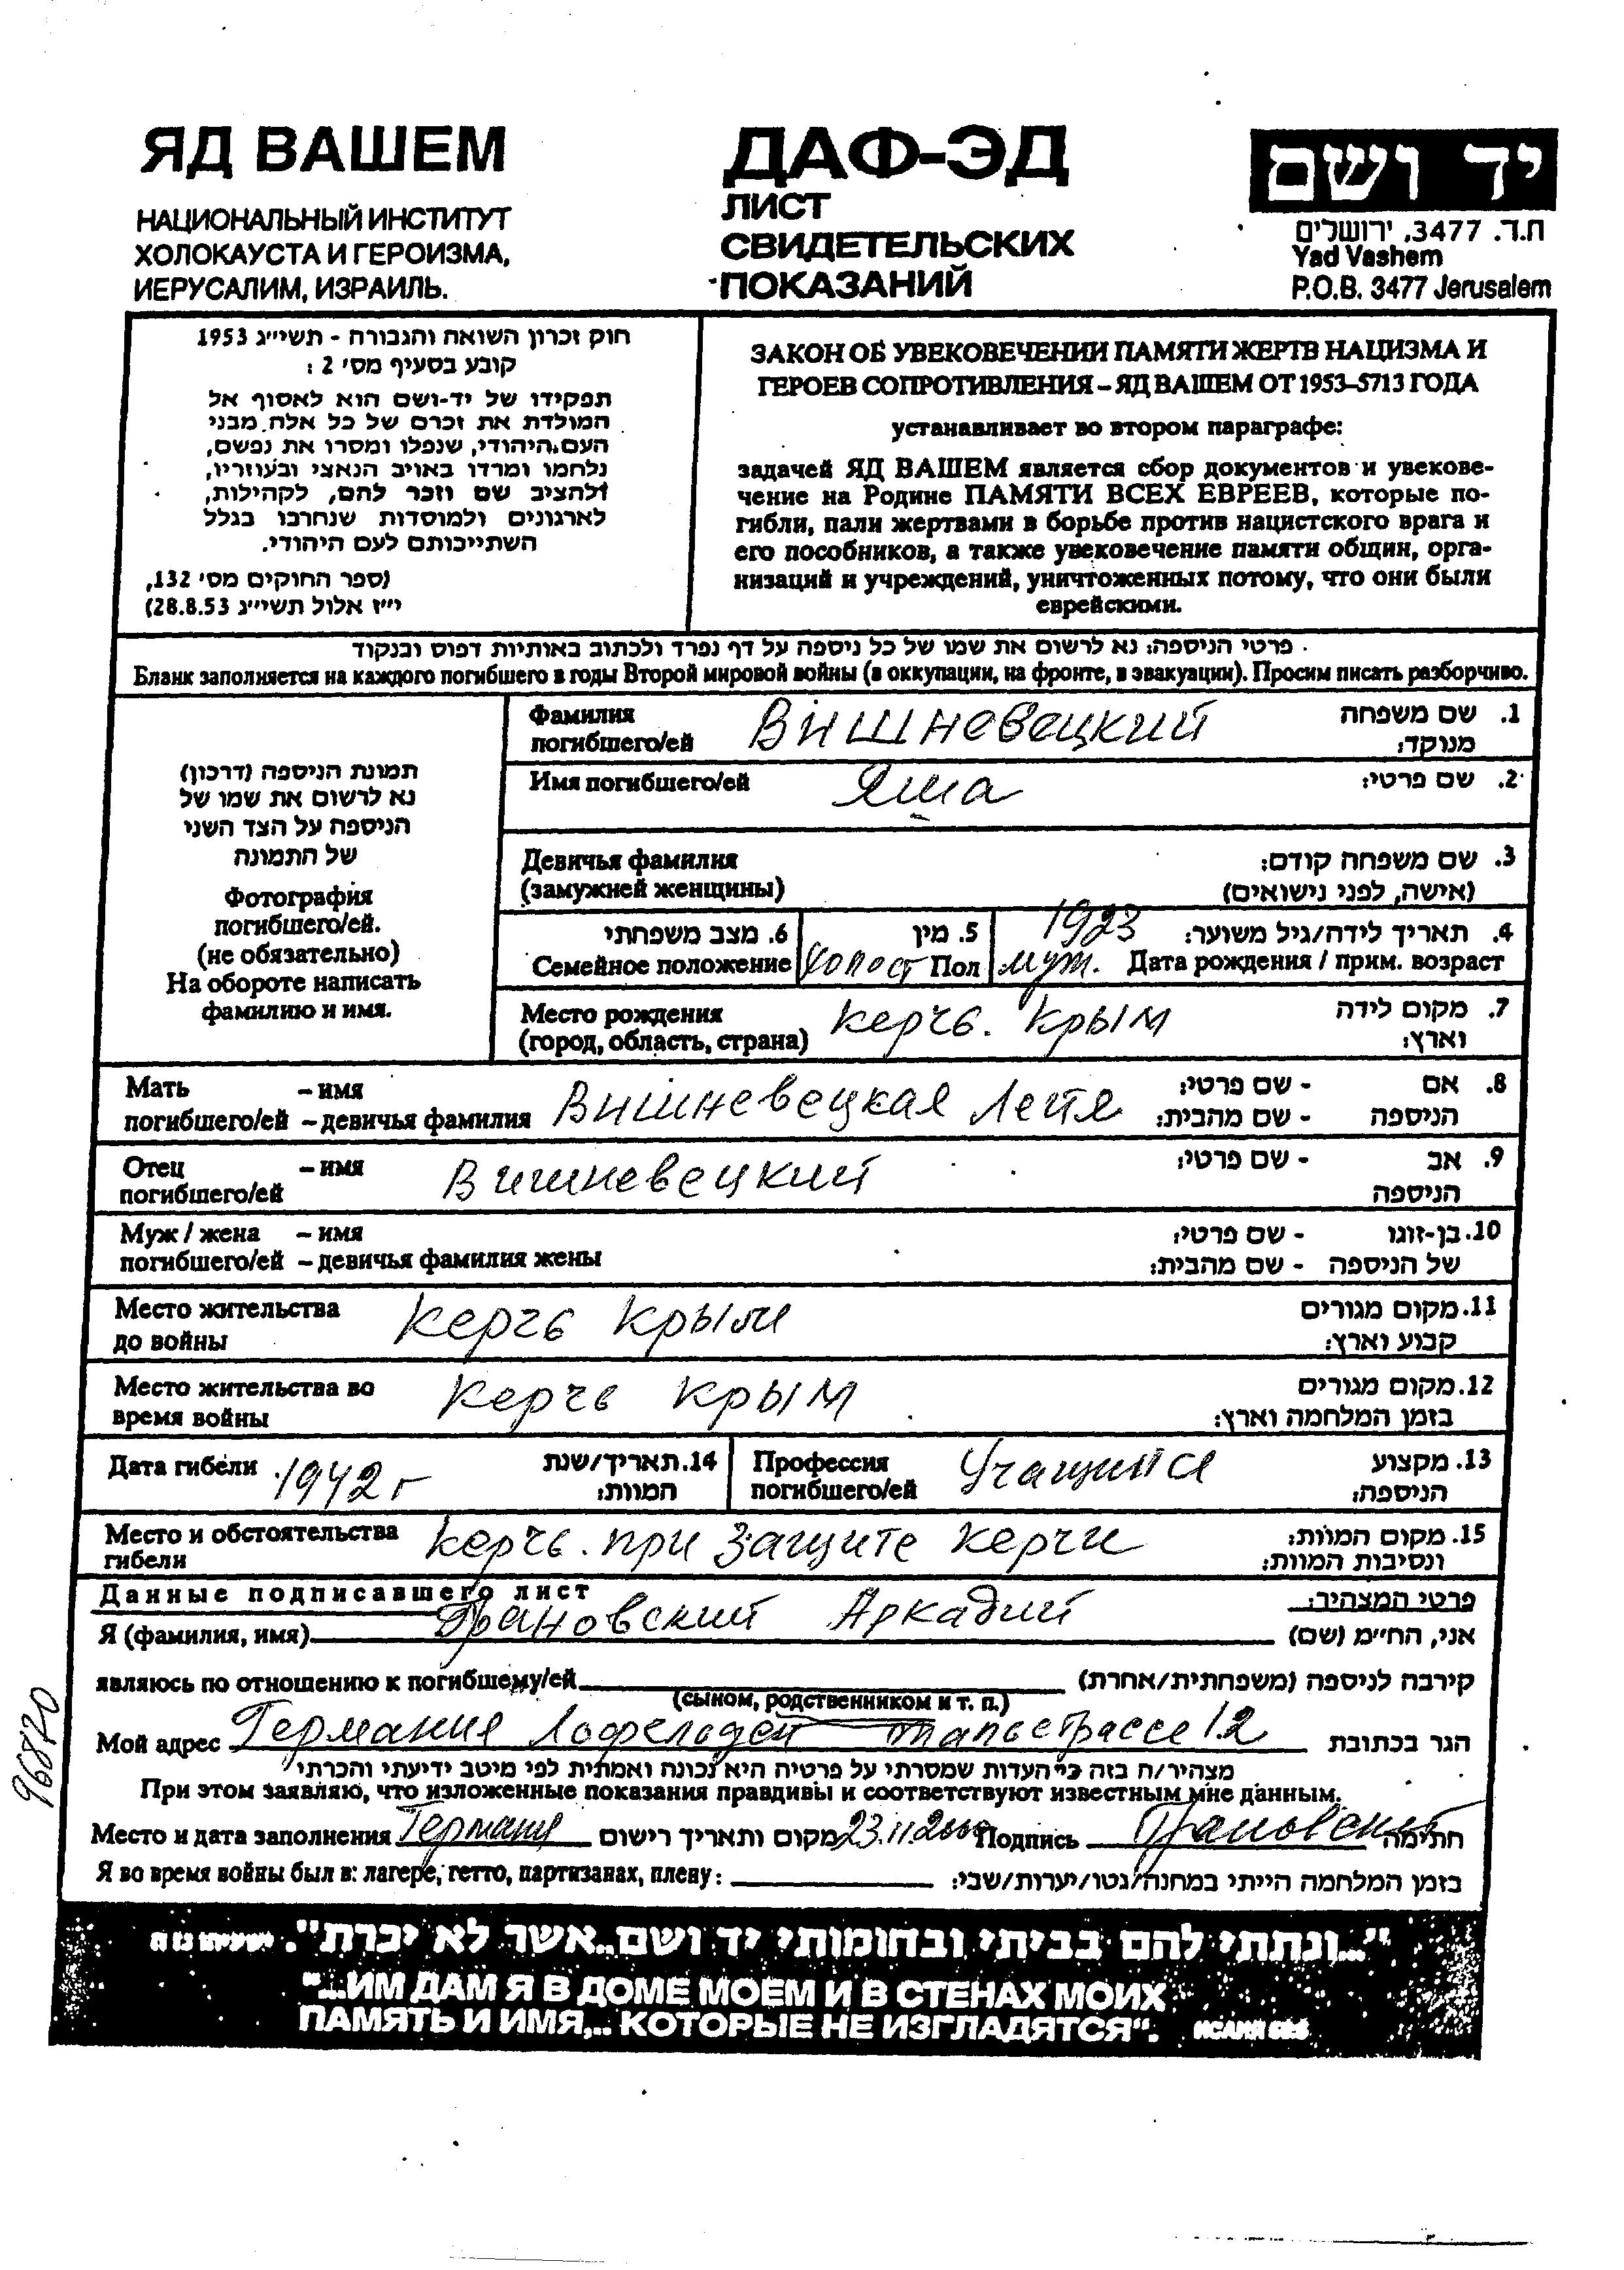 ЯД ВАШЕМ
НАЦИОНАЛЬНЫЙ ИНСТИТУТ
ХОЛОКАУСТА И ГЕРОИЗМА,
ИЕРУСАЛИМ, ИЗРАИЛЬ.
ДАФ-ЭД
ЛИСТ
СВИДЕТЕЛЬСКИХ
ПОКАЗАНИЙ
יד ושם
ת.ד. 3477, ירושלים
Yad Vashem
P.O.B. 3477 Jerusalem
חוק זכרון השואה והגבורה - תשי״ג 1953
קובע בסעיף מס׳ 2 :
תפקידו של יד-ושם הוא לאסוף אל
המולדת את זכרם של כל אלה מבני
העם היהודי, שנפלו ומסרו את נפשם,
נלחמו ומרדו באויב הנאצי ובעוזריו,
ולהציב שם וזכר להם, לקהילות,
לארגונים ולמוסדות שנחרבו בגלל
השתייכותם לעם היהודי.
(ספר החוקים מס׳ 132,
י״ז אלול תשי״ג 28.8.53)
ЗАКОН ОБ УВЕКОВЕЧЕНИИ ПАМЯТИ ЖЕРТВ НАЦИЗМА И
ГЕРОЕВ СОПРОТИВЛЕНИЯ – ЯД ВАШЕМ ОТ 1953–5713 ГОДА
устанавливает во втором параграфе:
задачей ЯД ВАШЕМ является сбор документов и увекове-
чение на Родине ПАМЯТИ ВСЕХ ЕВРЕЕВ, которые по-
гибли, пали жертвами в борьбе против нацистского врага и
его пособников, а также увековечение памяти общин, орга-
низаций и учреждений, уничтоженных потому, что они были
еврейскими.
פרטי הניספה: נא לרשום את שמו של כל ניספה על דף נפרד ולכתוב באותיות דפוס ובנקוד
Бланк заполняется на каждого погибшего в годы Второй мировой войны (в оккупации, на фронте, в эвакуации). Просим писать разборчиво.
תמונת הניספה (דרכון)
נא לרשום את שמו של
הניספה על הצד השני
של התמונה
Фотография
погибшего/ей.
(не обязательно)
На обороте написать
фамилию и имя.
Фамилия Вишневецкий 1. שם משפחה
погибшего/ей מנוקד:
Имя погибшего/ей Яша 2. שם פרטי:
Девичья фамилия 3. שם משפחה קודם:
(замужней женщины) (אישה, לפני נישואים)
6. מצב משפחתי 5. מין 1923 4. תאריך לידה/גיל משוער:
Семейное положение холост Пол муж. Дата рождения / прим. возраст
Место рождения Керчь. Крым 7. מקום לידה
(город, область, страна) וארץ:
Мать – имя 8. אם - שם פרטי:
погибшего/ей – девичья фамилия Вишневецкая Лейя הניספה - שם מהבית:
Отец – имя Вишневецкий 9. אב - שם פרטי:
погибшего/ей הניספה
Муж / жена – имя 10. בן-זוגו - שם פרטי:
погибшего/ей – девичья фамилия жены של הניספה - שם מהבית:
Место жительства Керчь Крым 11. מקום מגורים
до войны קבוע וארץ:
Место жительства во Керчь Крым 12. מקום מגורים
время войны בזמן המלחמה וארץ:
Дата гибели 1942 г 14. תאריך/שנת Профессия Учащийся 13. מקצוע
המוות: погибшего/ей הניספה:
Место и обстоятельства Керчь. при защите Керчи 15. מקום המוות:
гибели ונסיבות המוות:
Данные подписавшего лист פרטי המצהיר:
Я (фамилия, имя) Грановский Аркадий אני, הח״מ (שם)
являюсь по отношению к погибшему/ей קירבה לניספה (משפחתית/אחרת)
(сыном, родственником и т. п.)
Мой адрес Германия 12 הגר בכתובת
מצהיר/ה בזה כי העדות שמסרתי על פרטיה היא נכונה ואמתית לפי מיטב ידיעתי והכרתי
При этом заявляю, что изложенные показания правдивы и соответствуют известным мне данным.
Место и дата заполнения Германия מקום ותאריך רישום 23.11 2000 Подпись Грановский חתימה
Я во время войны был в: лагере, гетто, партизанах, плену: בזמן המלחמה הייתי במחנה/גטו/יערות/שבי:
96870
"...ונתתי להם בביתי ובחומותי יד ושם..אשר לא יכרת". ישעיהו נו ה
"...ИМ ДАМ Я В ДОМЕ МОЕМ И В СТЕНАХ МОИХ
ПАМЯТЬ И ИМЯ,.. КОТОРЫЕ НЕ ИЗГЛАДЯТСЯ". ИСАИЯ 56:5